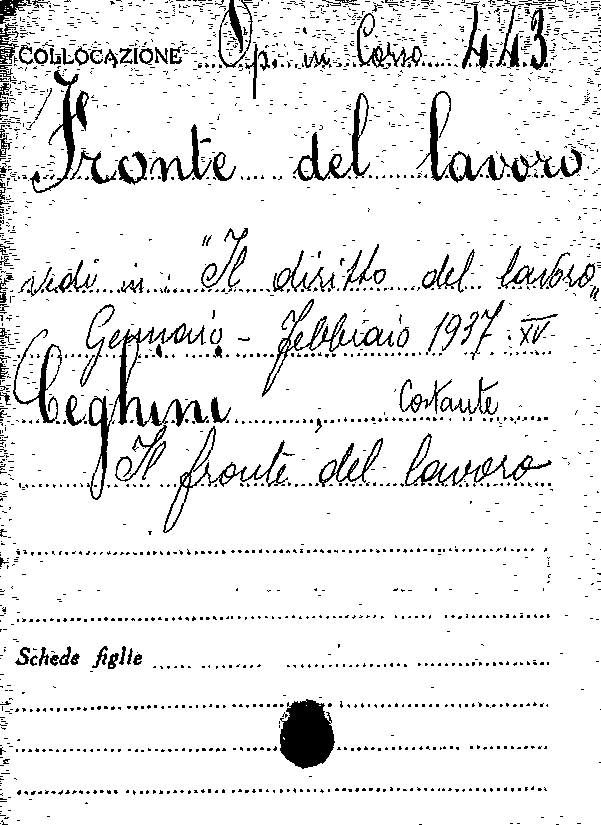 COLLOCAZIONE Op. in Corso 443
Fronte del lavoro
vedi in: "Il diritto del lavoro"
Gennaio - Febbraio 1937. XV
Ceghini, Costante
Il fronte del lavoro
Schede figlie